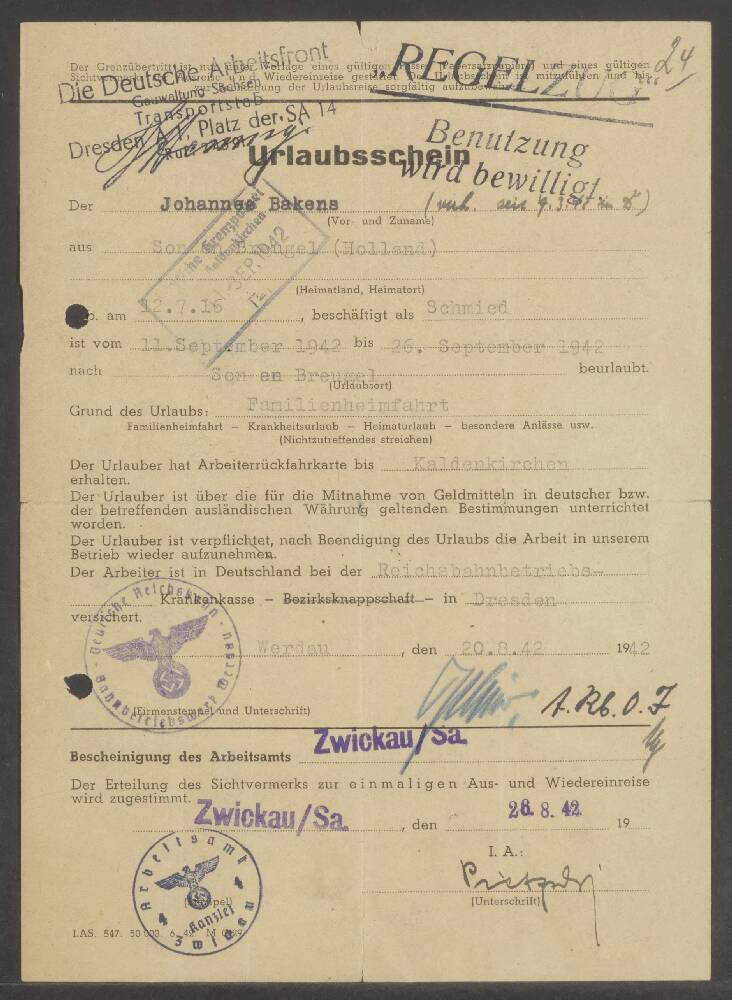 Der Grenzübertritt ist nur unter Vorlage eines gültigen Passes, Passersatzpapiers und eines gültigen
Sichtvermerks zur und Wiedereinreise gestattet. Der Urlaubsschein ist mitzuführen und bis
zur Beendigung der Urlaubsreise sorgfältig aufzubewahren.
Die Deutsche Arbeitsfront
Gauwaltung Sachsen
Transportstab
Dresden A 1, Platz der SA 14
"REGELZUG"
24
Benutzung
wird bewilligt
Urlaubsschein
Der Johannes Bakens
(Vor- und Zuname)
aus Son en Breugel (Holland)
(Heimatland, Heimatort)
geb. am 12.7.16, beschäftigt als Schmied
ist vom 11. September 1942 bis 26. September 1942
nach Son en Breugel beurlaubt.
(Urlaubsort)
Grund des Urlaubs: Familienheimfahrt
Familienheimfahrt – Krankheitsurlaub – Heimaturlaub – besondere Anlässe usw.
(Nichtzutreffendes streichen)
Der Urlauber hat Arbeiterrückfahrkarte bis Kaldenkirchen
erhalten.
Der Urlauber ist über die für die Mitnahme von Geldmitteln in deutscher bzw.
der betreffenden ausländischen Währung geltenden Bestimmungen unterrichtet
worden.
Der Urlauber ist verpflichtet, nach Beendigung des Urlaubs die Arbeit in unserem
Betrieb wieder aufzunehmen.
Der Arbeiter ist in Deutschland bei der Reichsbahnbetriebs-
Krankenkasse – Bezirksknappschaft – in Dresden
versichert.
Deutsche Reichsbahn
Bahnbetriebswerk Werdau
Werdau, den 20.8.42 1942
(Firmenstempel und Unterschrift)
Zwickau/Sa.
Bescheinigung des Arbeitsamts
Der Erteilung des Sichtvermerks zur einmaligen Aus- und Wiedereinreise
wird zugestimmt.
Zwickau/Sa., den 26. 8. 42 19
I. A.:
(Unterschrift)
Arbeitsamt
Zwickau
4 4
(Stempel)
Kanzlei
LAS. 547. 50 000. 6. 42. M